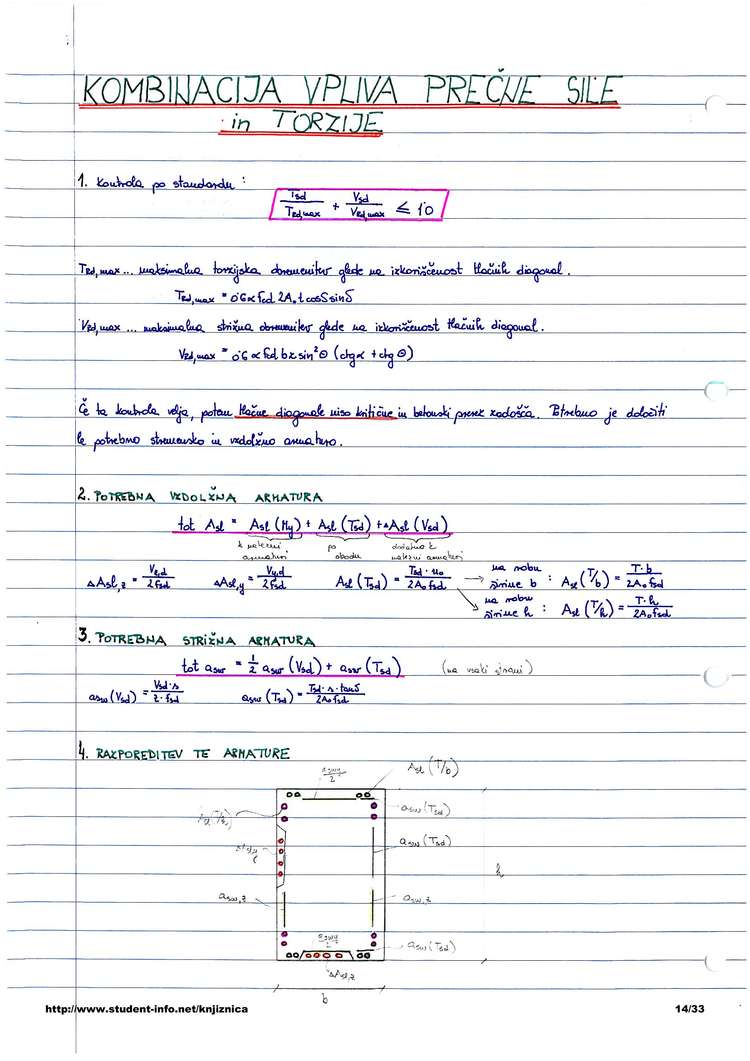 KOMBINACIJA VPLIVA PREČNE SILE
in TORZIJE
1. Kontrola po standardu :
Tsd / TRd,max + Vsd / VRd,max ≤ 1'0
TRd,max ... maksimalna torzijska obremenitev glede na izkoriščenost tlačnih diagonal.
TRd,max = 0'6 α fcd 2A₀ t cosδ sinδ
VRd,max ... maksimalna strižna obremenitev glede na izkoriščenost tlačnih diagonal.
VRd,max = 0'6 α fcd b z sin²Θ (ctgα + ctgΘ)
Če ta kontrola velja, potem tlačne diagonale niso kritične in betonski prerez zadošča. Potrebno je določiti
le potrebno stremensko in vzdolžno armaturo.
2. POTREBNA VZDOLŽNA ARMATURA
tot Asl = Asl (My) + Asl (Tsd) + ΔAsl (Vsd)
k natezni armaturi
po obodu
dodatno k natezni armaturi
ΔAsl,z = Vz,d / 2fsd ΔAsl,y = Vy,d / 2fsd Asl (Tsd) = Tsd · u₀ / 2A₀ fsd → na robu širine b : Asl (T/b) = T · b / 2A₀ fsd
na robu širine h : Asl (T/h) = T · h / 2A₀ fsd
3. POTREBNA STRIŽNA ARMATURA
tot asw = 1/2 asw (Vsd) + asw (Tsd) (na vsaki strani)
asw (Vsd) = Vsd · s / z · fsd asw (Tsd) = Tsd · s · tanδ / 2A₀ fsd
4. RAZPOREDITEV TE ARMATURE
asw,y / 2
Asl (T/b)
asw (Tsd)
Asl (T/h)
asw (Tsd)
h
asw,z
asw,z
asw,y / 2
asw (Tsd)
ΔAsl,z
b
http://www.student-info.net/knjiznica 14/33